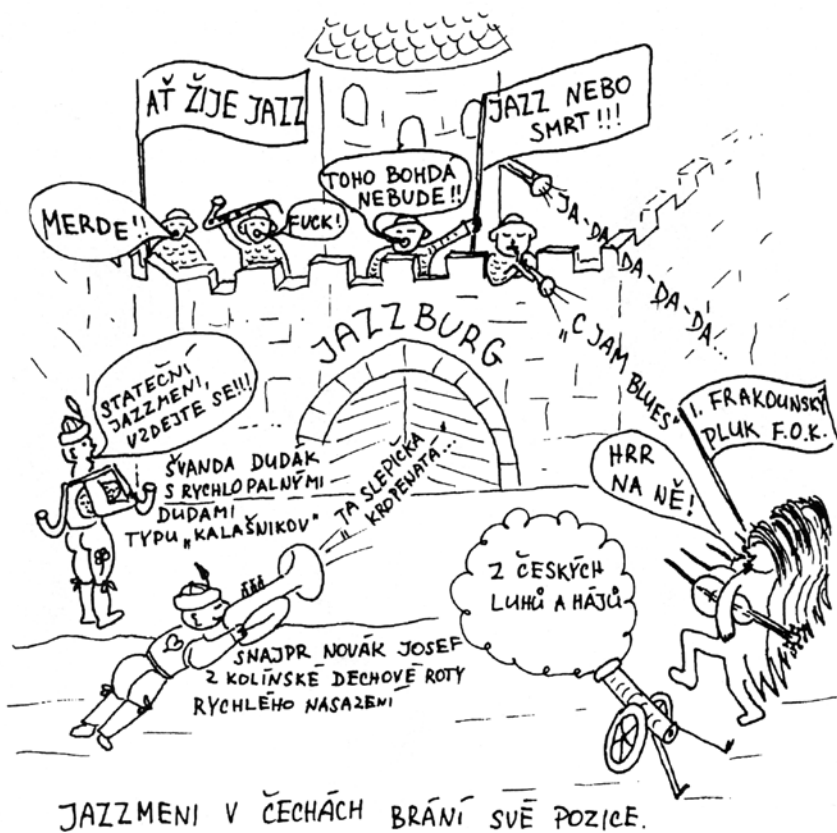 AŤ ŽIJE JAZZ
JAZZ NEBO
SMRT!!!
MERDE!!
FUCK!
TOHO BOHDÁ
NEBUDE!!
JA-DA-DA-DA-DA...
JAZZBURG
„C JAM BLUES“
STATEČNÍ
JAZZMENI,
VZDEJTE SE!!!
ŠVANDA DUDÁK
S RYCHLOPALNÝMI
DUDAMI
TYPU „KALAŠNIKOV“
„TA SLEPIČKA
KROPENATÁ...“
1. FRAKOUNSKÝ
PLUK F.O.K.
HRR
NA NĚ!
Z ČESKÝCH
LUHŮ A HÁJŮ
SNAJPR NOVÁK JOSEF
Z KOLÍNSKÉ DECHOVÉ ROTY
RYCHLÉHO NASAZENÍ
JAZZMENI V ČECHÁCH BRÁNÍ SVÉ POZICE.